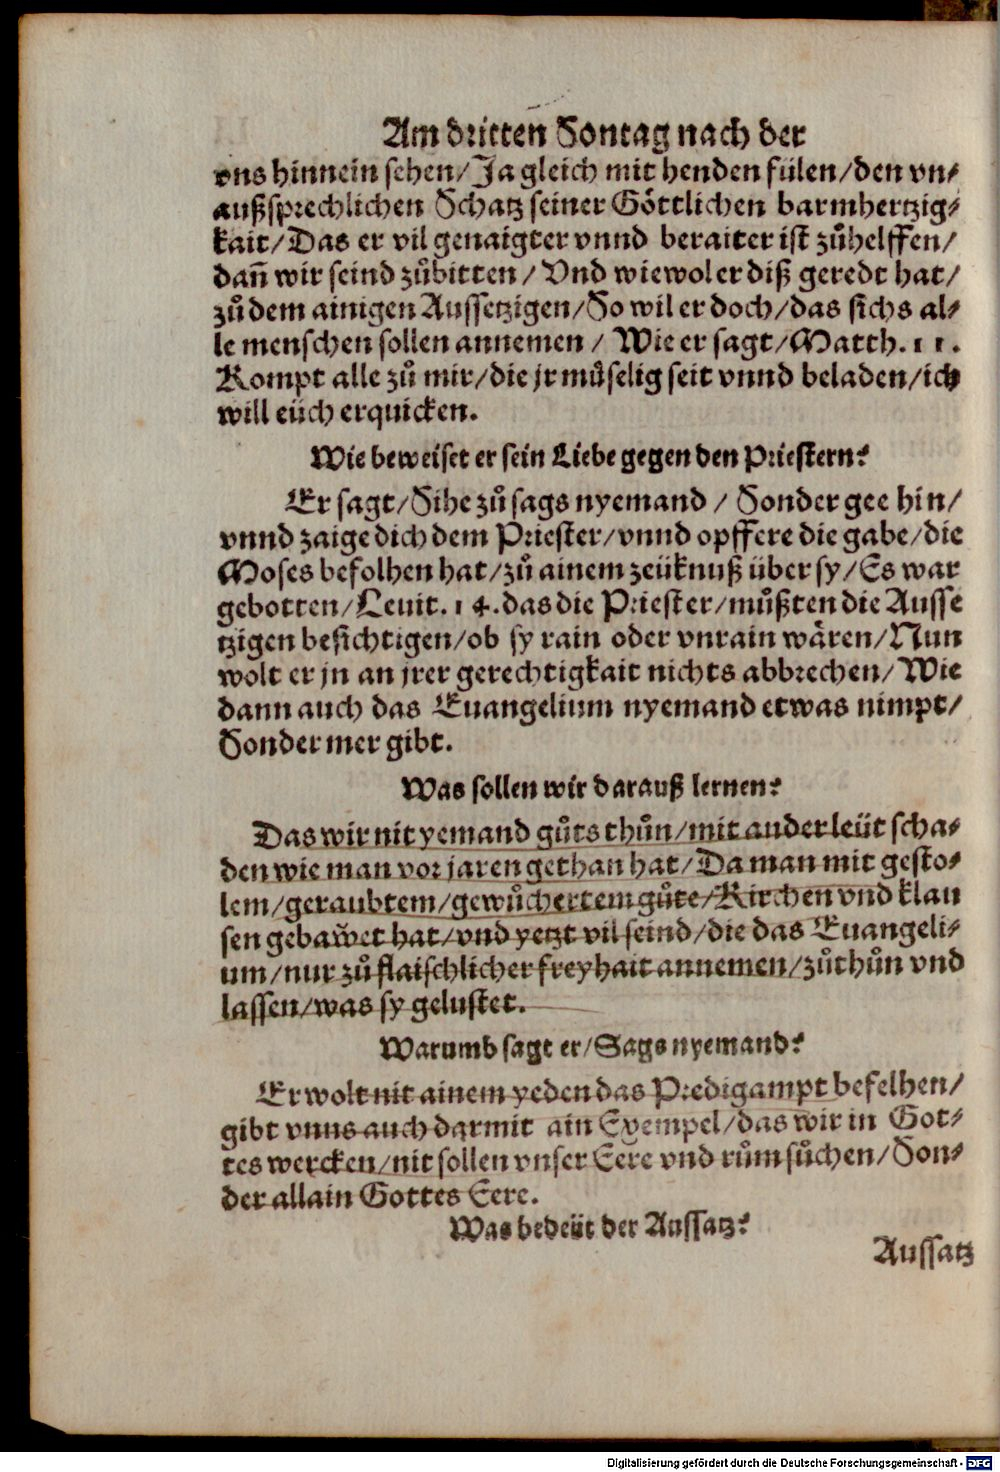 Am dritten Sontag nach der
vns hinnein sehen/ Ja gleich mit henden fülen/ den vn-
außsprechlichen Schatz seiner Göttlichen barmhertzig-
kait/ Das er vil genaigter vnnd beraiter ist zůhelffen/
dañ wir seind zůbitten/ Vnd wiewol er diß geredt hat/
zů dem ainigen Aussetzigen/ So wil er doch/ das sichs al-
le menschen sollen annemen/ Wie er sagt/ Matth. 11.
Kompt alle zů mir/ die jr müselig seit vnnd beladen/ ich
will eüch erquicken.
Wie beweiset er sein Liebe gegen den Priestern?
Er sagt/ Sihe zů sags nyemand/ Sonder gee hin/
vnnd zaige dich dem Priester/ vnnd opffere die gabe/ die
Moses befolhen hat/ zů ainem zeüknuß über sy/ Es war
gebotten/ Leuit. 14. das die Priester/ můßten die Ausse
tzigen besichtigen/ ob sy rain oder vnrain wären/ Nun
wolt er jn an jrer gerechtigkait nichts abbrechen/ Wie
dann auch das Euangelium nyemand etwas nimpt/
Sonder mer gibt.
Was sollen wir darauß lernen?
Das wir nit yemand gůts thůn/ mit ander leüt scha-
den wie man vor jaren gethan hat/ Da man mit gesto-
lem/ geraubtem/ gewůchertem gůte/ Kirchen vnd klau
sen gebawet hat/ vnd yetzt vil seind/ die das Euangeli-
um/ nur zů flaischlicher freyhait annemen/ zůthůn vnd
lassen/ was sy gelustet.
Warumb sagt er/ Sags nyemand?
Er wolt nit ainem yeden das Predigampt befelhen/
gibt vnns auch darmit ain Exempel/ das wir in Got-
tes wercken/ nit sollen vnser Eere vnd rům sůchen/ Son-
der allain Gottes Eere.
Was bedeüt der Aussatz?
Aussatz
Digitalisierung gefördert durch die Deutsche Forschungsgemeinschaft - DFG